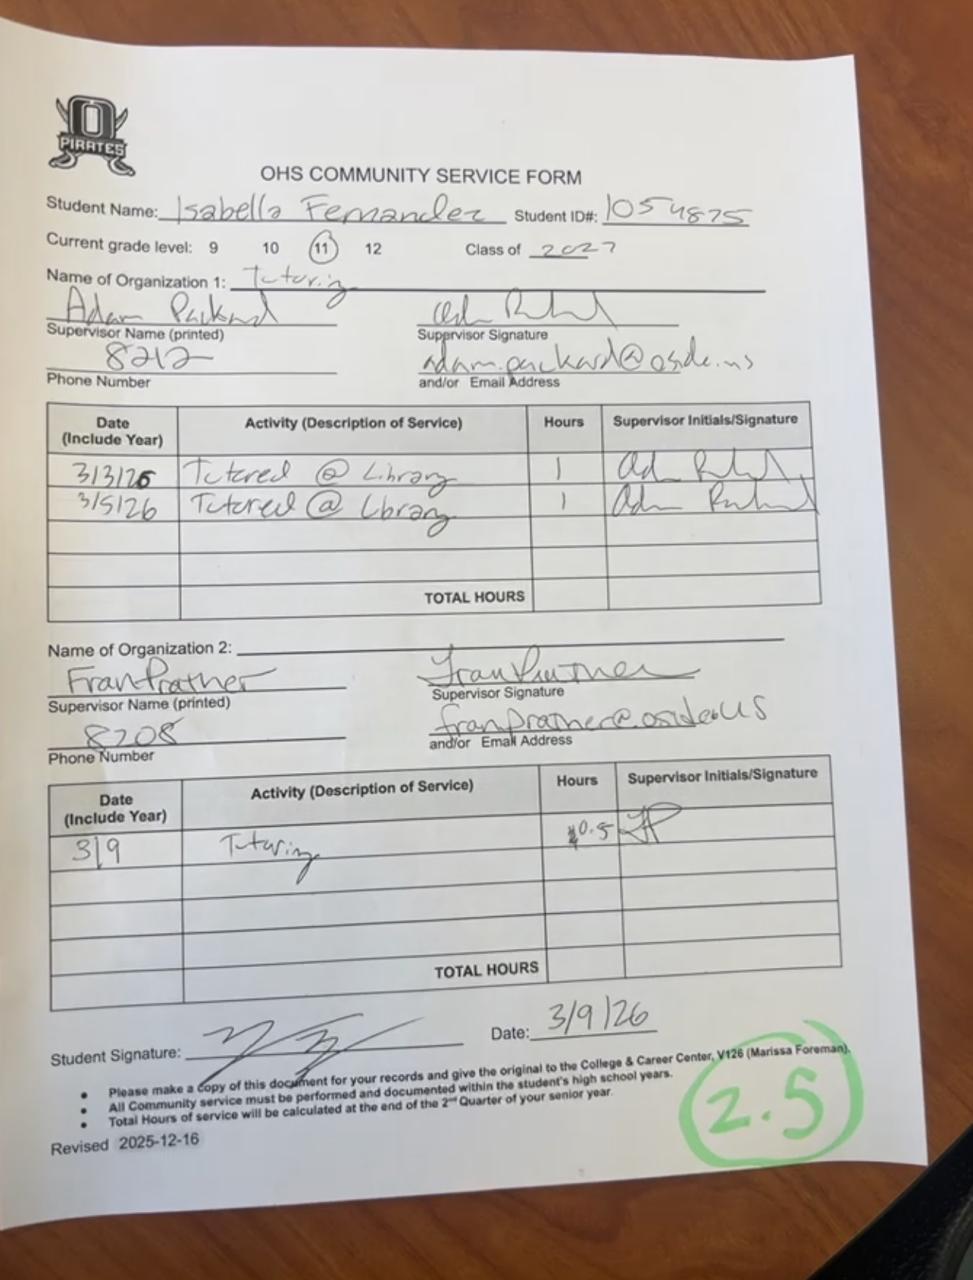 O
PIRATES
OHS COMMUNITY SERVICE FORM
Student Name: Isabella Fernandez Student ID#: 1054875
Current grade level: 9 10 11 12 Class of 2027
Name of Organization 1: Tutoring
Adam Packard
Supervisor Name (printed) Supervisor Signature
8212 adam.packard@oside.us
Phone Number and/or Email Address
Date (Include Year) Activity (Description of Service) Hours Supervisor Initials/Signature
3/3/26 Tutored @ Library 1
3/5/26 Tutored @ Library 1
TOTAL HOURS
Name of Organization 2:
Fran Prather Fran Prather
Supervisor Name (printed) Supervisor Signature
8208 fran.prather@oside.us
Phone Number and/or Email Address
Date (Include Year) Activity (Description of Service) Hours Supervisor Initials/Signature
3/9 Tutoring 0.5 FP
TOTAL HOURS
Student Signature: Date: 3/9/26
• Please make a copy of this document for your records and give the original to the College & Career Center, V126 (Marissa Foreman).
• All Community service must be performed and documented within the student's high school years.
• Total Hours of service will be calculated at the end of the 2nd Quarter of your senior year.
Revised 2025-12-16
2.5